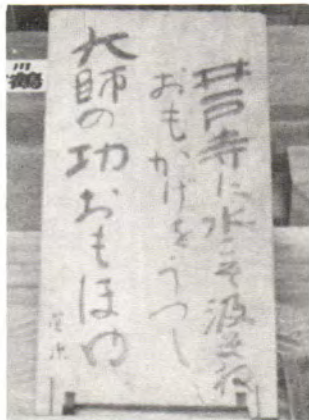 井戸寺に水こそ汲まね
おもかげをうつし
大師の功おもほゆ
鶴